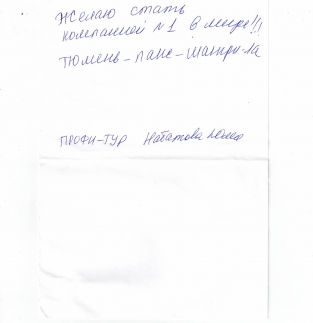 Желаю стать
компанией №1 в мире!!!
Тюмень-пакс-шангри-ла
ПРОФИ-ТУР Юлия